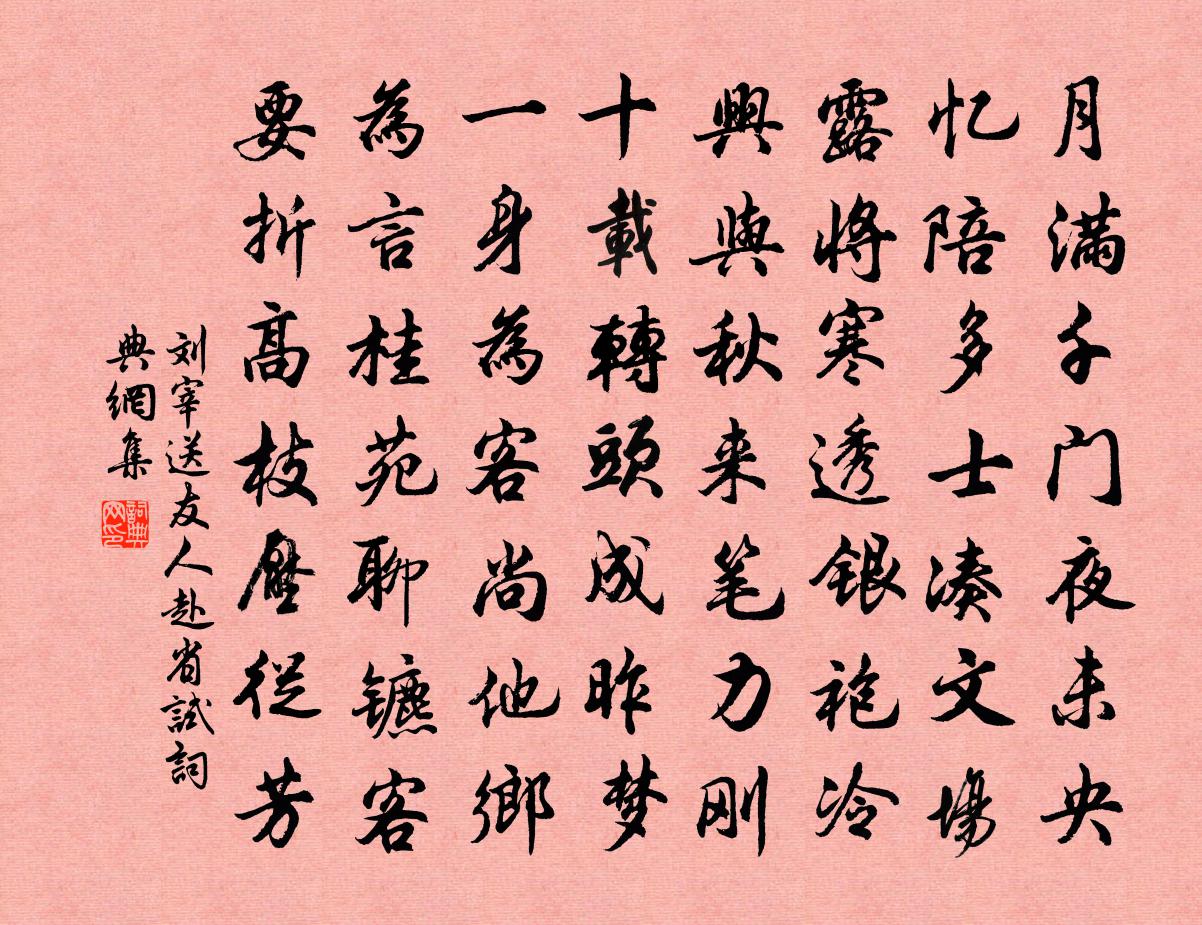 月满千门夜未央
忆陪多士凑文场
露将寒透银袍冷
興與秋来笔力刚
十載轉頭成昨梦
一身為客尚他鄉
為言桂苑聊镳客
要折高枝壓從芳
刘宰送友人赴省試詞
典網集
詞典网印